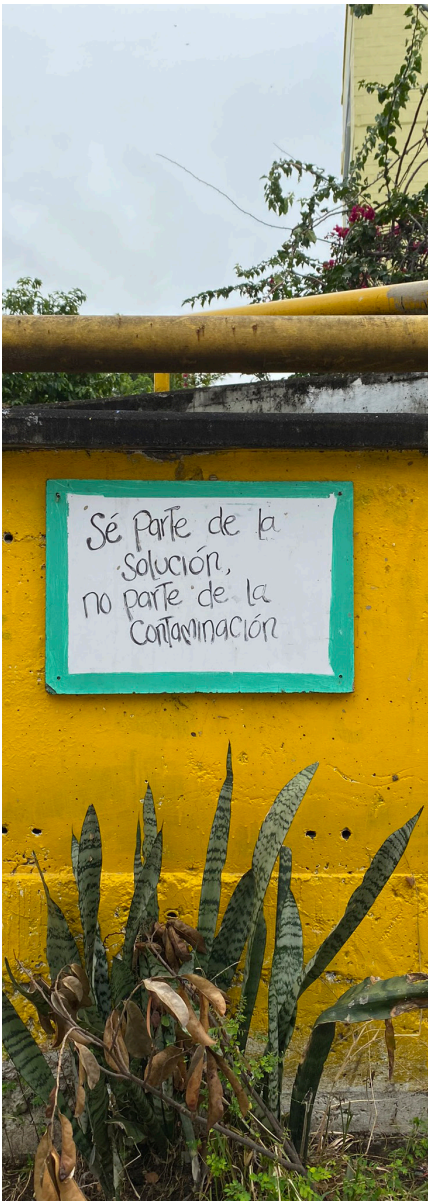 Sé parte de la
solución,
no parte de la
contaminación